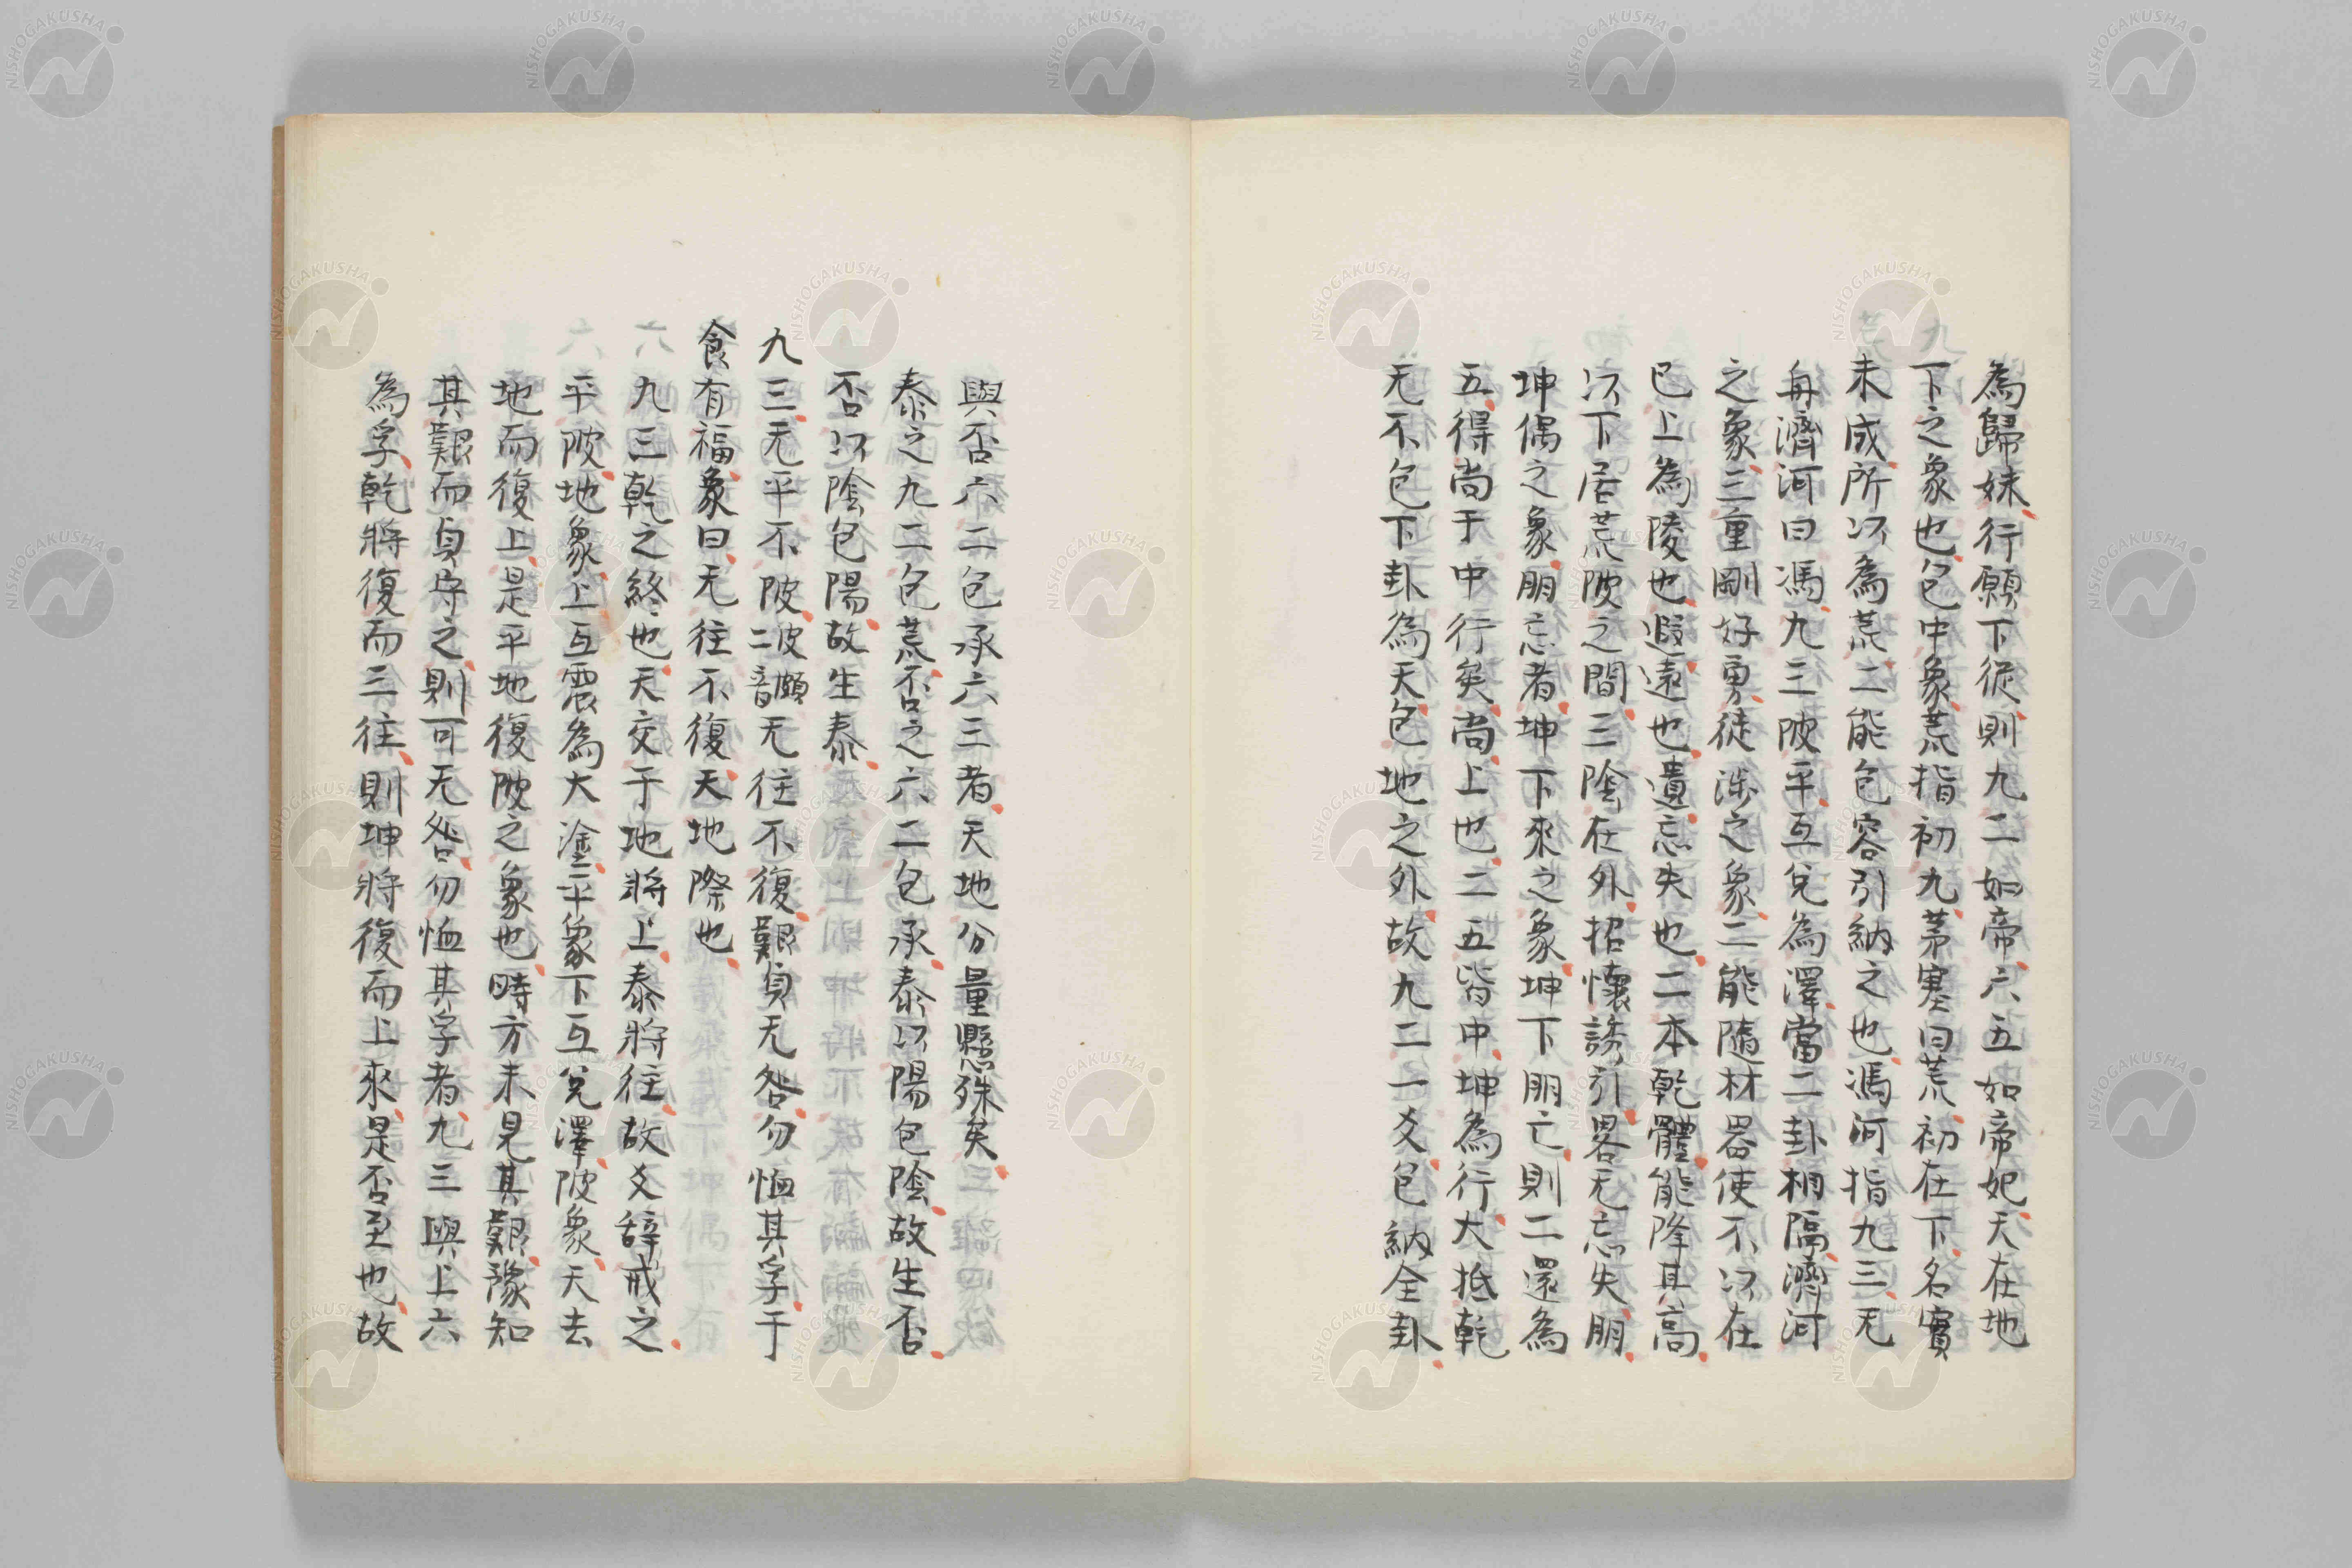 為歸妹行願下從則九二如帝六五如帝妃天在地
下之象也包中象荒指初九茅塞曰荒初在下名實
未成所以為荒二能包容引納之也馮河指九三无
舟濟河曰馮九三陂平互兌為澤當二卦相隔濟河
之象三重剛好勇徒涉之象二能隨材器使不以在
已上為陵也遐遠也遺忘失也二本乾體能降其高
以下居荒陂之間三陰在外招懷誘引畧无忘失朋
坤偶之象朋忘者坤下來之象坤下朋亡則二還為
五得尚于中行矣尚上也二五皆中坤為行大抵乾
无不包下卦為天包地之外故九二一爻包納全卦
與否六二包承六三者天地分量懸殊矣
泰之九二包荒否之六二包承泰以陽包陰故生否
否以陰包陽故生泰
九三无平不陂二坡音頗无往不復艱貞无咎勿恤其孚于
食有福象曰无往不復天地際也
九三乾之終也天交于地將上泰將往故爻辭戒之
平陂地象上互震為大塗平象下互兌澤陂象天去
地而復上是平地復陂之象也時方未見其艱豫知
其艱而貞守之則可无咎勿恤其孚者九三與上六
為孚乾將復而三往則坤將復而上來是否至也故